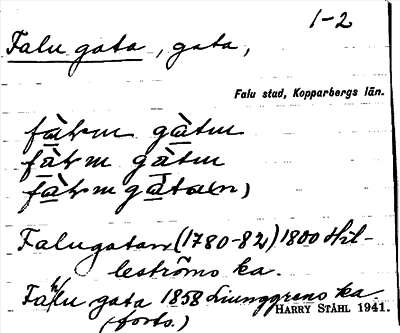 1-2
Falu gata, gata,
Falu stad, Kopparbergs län.
gàtm
gàtm
gàta(n)
Falugatan (1780-82) 1800 Hil-
leströms ka.
Falu gata 1858 Liunggrens ka
(forts.)
HARRY STÅHL 1941.